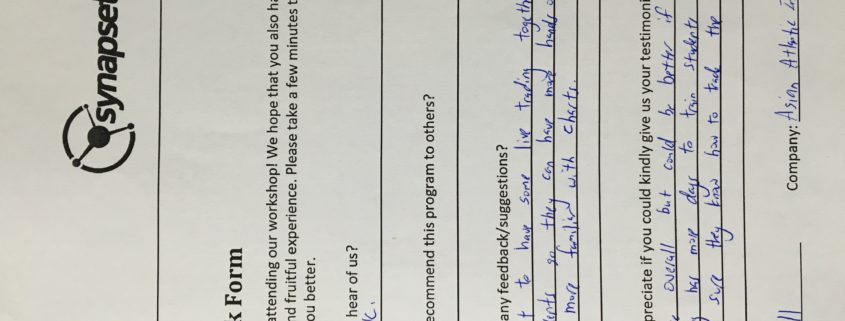 synapse
k Form
attending our workshop! We hope that you also ha
nd fruitful experience. Please take a few minutes t
ou better.
hear of us?
ecommend this program to others?
any feedback/suggestions?
t to have some live trading togeth
ents so they can have more hands o
more familiar with charts.
preciate if you could kindly give us your testimoni
overall but could be better if
has more days to train students
sure they know how to trade the
Company: Asian Atlantic